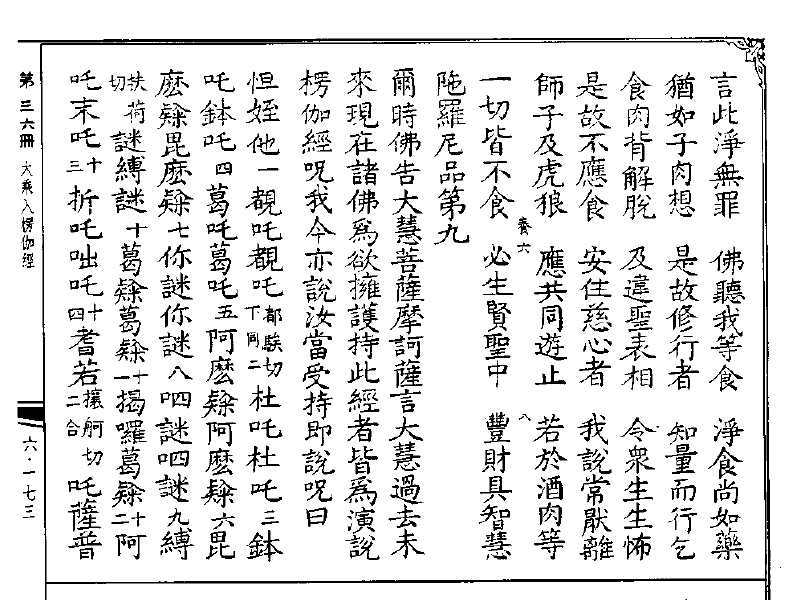 言此淨無罪　佛聽我等食　淨食尚如藥
猶如子肉想　是故修行者　知量而行乞
食肉背解脫　及違聖表相　令衆生生怖
是故不應食　安住慈心者　我說常厭離
師子及虎狼　應共同遊止　若於酒肉等
養六　八
一切皆不食　必生賢聖中　豐財具智慧
陁羅尼品第九
爾時佛告大慧菩薩摩訶薩言大慧過去未
來現在諸佛爲欲擁護持此經者皆爲演說
楞伽經呪我今亦說汝當受持即說呪曰
怛姪他一覩吒覩吒都騃切下同二杜吒杜吒三鉢
吒鉢吒四葛吒葛吒五阿麽㘑阿麽㘑六毘
麽㘑毘麽㘑七你謎你謎八呬謎呬謎九縛
扶荷切謎縛謎十葛㘑葛㘑十一揭囉葛㘑十二阿
吒末吒十三折吒咄吒十四耆若攘舸切二合吒薩普
第三六冊　大乘入楞伽經
六·一七三